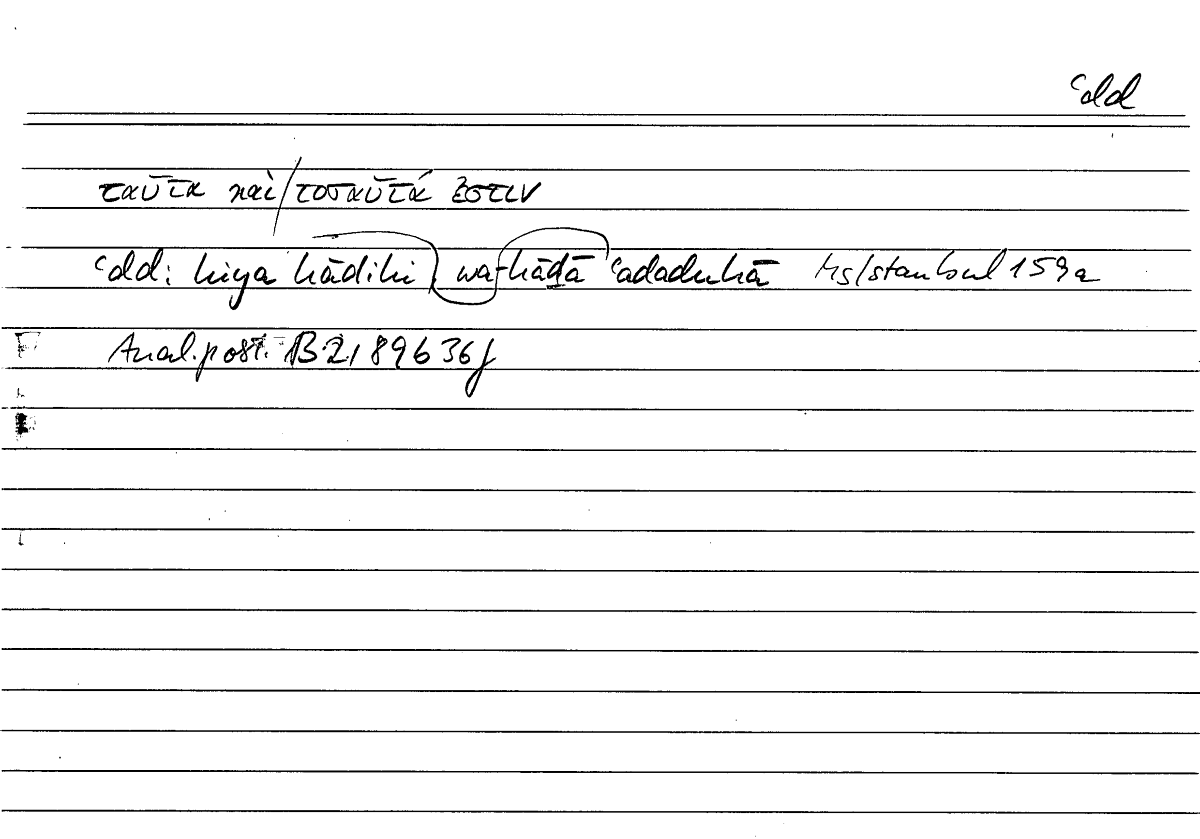 ʿdd
ταῦτα καὶ / τοσαῦτά ἐστιν
ʿdd: hiya hāḏihi wa-hāḏā ʿadaduhā Hs Istanbul 159a
Anal. post. B 2, 89b36f